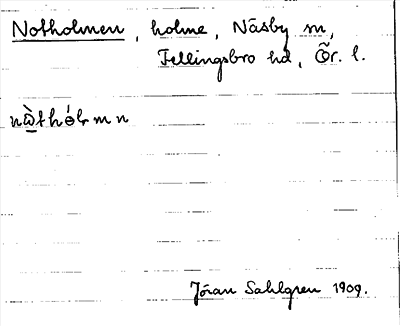 Notholmen, holme, Näsby sn,
Fellingsbro hd, Ör. l.
nὼthólmn
Jöran Sahlgren 1909.